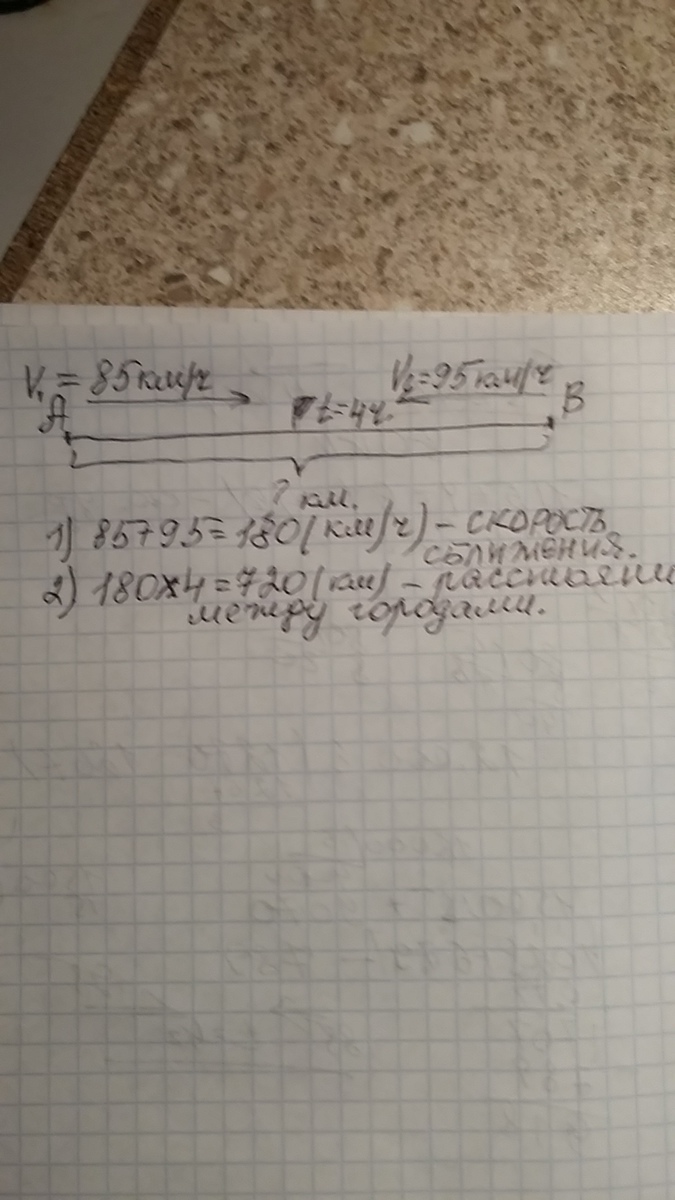 V₁ = 85км/ч
V₂=95км/ч
A
t=4ч.
B
? км.
1) 85+95=180(км/ч) - скорость
сближения.
2) 180×4=720(км) - расстояни
между городами.